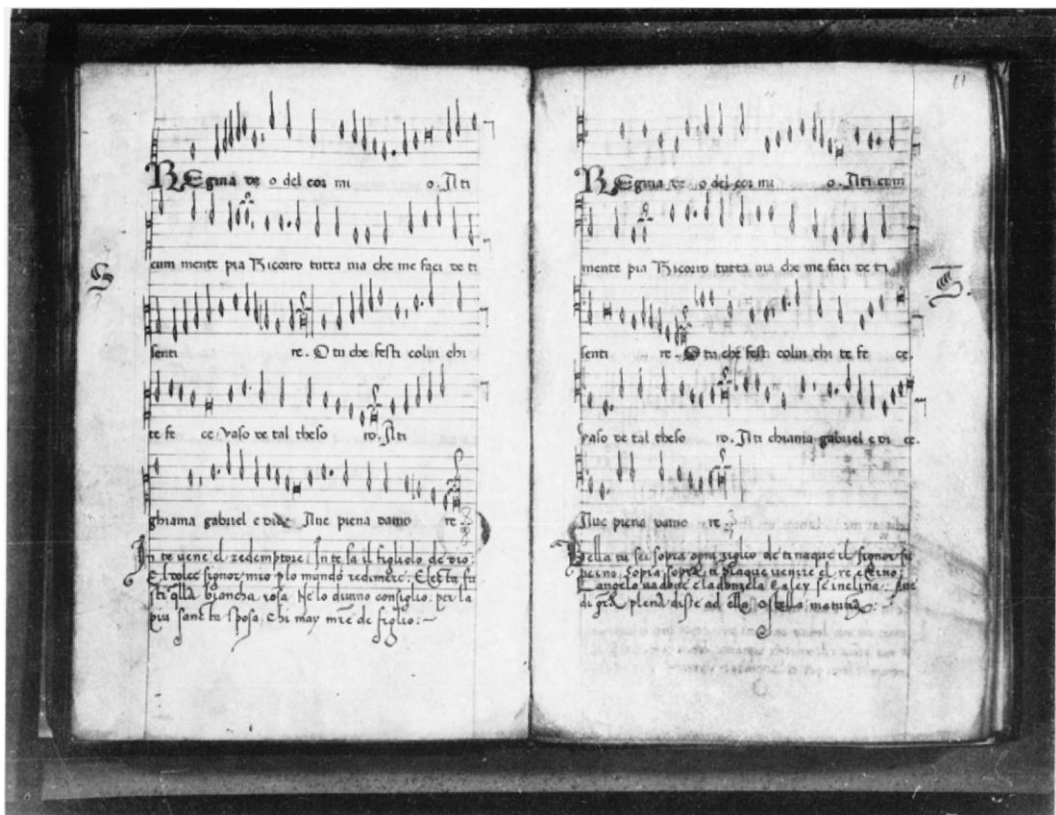 11
REgina de o del cor mi o. A ti
cum mente pia Ricorro tutta uia che me faci de ti
S
senti re. O tu che festi colui chi
te fe ce. vaso de tal theso ro. A ti
ghiama gabriel e dice Aue piena damo re
In te uene el redemptore. In te sa il figliolo de dio.
El dolce signor mio p lo mundo redimere. E
sti qlla biancha rosa Ne lo diuino consiglio. per la
piu sancta sposa Chi may mre de figlio:~
REgina de o del cor mi o. A ti cum
mente pia Ricorro tutta uia che me faci de ti
senti re. O tu che festi colui chi te fe ce.
vaso de tal theso ro. A ti chiama gabriel e di ce.
Aue piena damo re
Bella tu sei sopra ogni ziglio de ti naque il signor su
perno. sopra ti piaque uenire el re eterno.
L angelo ua e la donzela E a ley se inclina.
di gra plena diste ad ella stella matutia:~